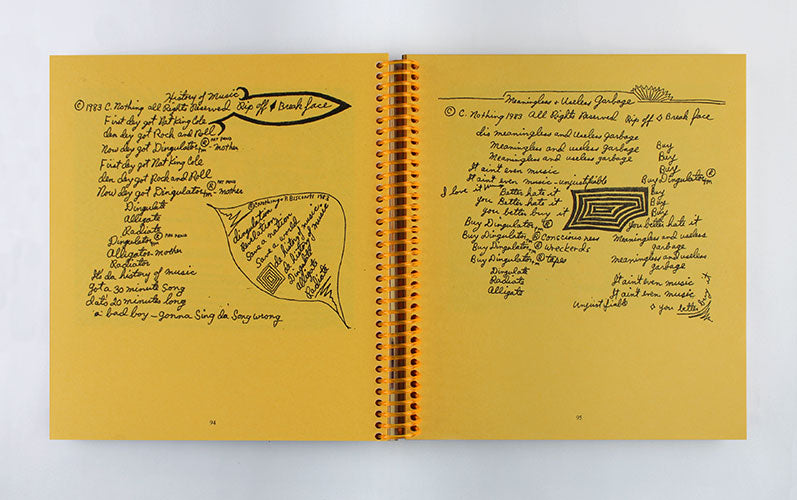 History of Music
© 1983 C. Nothing all Rights Reserved Rip off & Break face
First dey got Nat King Cole
den dey got Rock and Roll
Now dey got Dingulator TM - mother
® PAT PEND
First dey got Nat King Cole
den dey got Rock and Roll
Now dey got Dingulator TM - mother
® PAT PEND
Dingulate
Alligate
Radiate
Dingulator ® PAT PEND
Alligator mother
Radiator
It's da history of music
Got a 30 minute song
dat's 20 minutes long
'a' bad boy - gonna Sing da' Song wrong
1983
dingulation
Revelation
Save a nation
Save a world
da history of music
da history of music
Dingulate
Alligate
Radiate
94
Meaningless & Useless Garbage
© C. Nothing 1983 All Rights Reserved Rip off & Break face
dis meaningless and Useless garbage
Meaningless and useless garbage Buy
Meaningless and useless garbage Buy
It ain't even music Buy
It ain't even music - unjustifiable Buy Dingulator TM ®
I love it Better hate it Buy
You Better hate it Buy
you better buy it Buy
Buy Dingulator ® you better hate it
Buy Dingulator ® Consciousness Meaningless and useless
garbage
Buy Dingulator ® wreckords
meaningless and useless
garbage
Buy Dingulator ® tapes
Dingulate
Radiate It ain't even music
Alligate It ain't even music
Unjustifiable
& you better
95